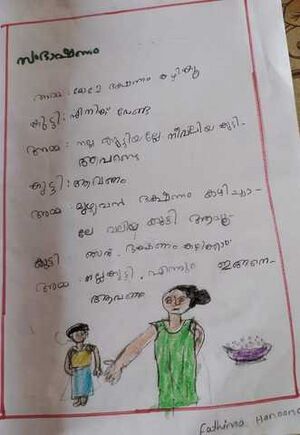 സംഭാഷണം
അമ്മ : മോളേ ഭക്ഷണം കഴിക്കൂ
കുട്ടി : എനിക്ക് വേണ്ട
അമ്മ : നല്ല കുട്ടിയല്ലേ നീ വലിയ കുട്ടി-
ആവണ്ടേ
കുട്ടി : ആവണം
അമ്മ : മുഴുവൻ ഭക്ഷണം കഴിച്ചാ-
ലേ വലിയ കുട്ടി ആവൂ
കുട്ടി : ഭക്ഷണം കഴിക്കാം
അമ്മ : നല്ലകുട്ടി. എന്നും ഇങ്ങനെ-
ആവണം
Fathima